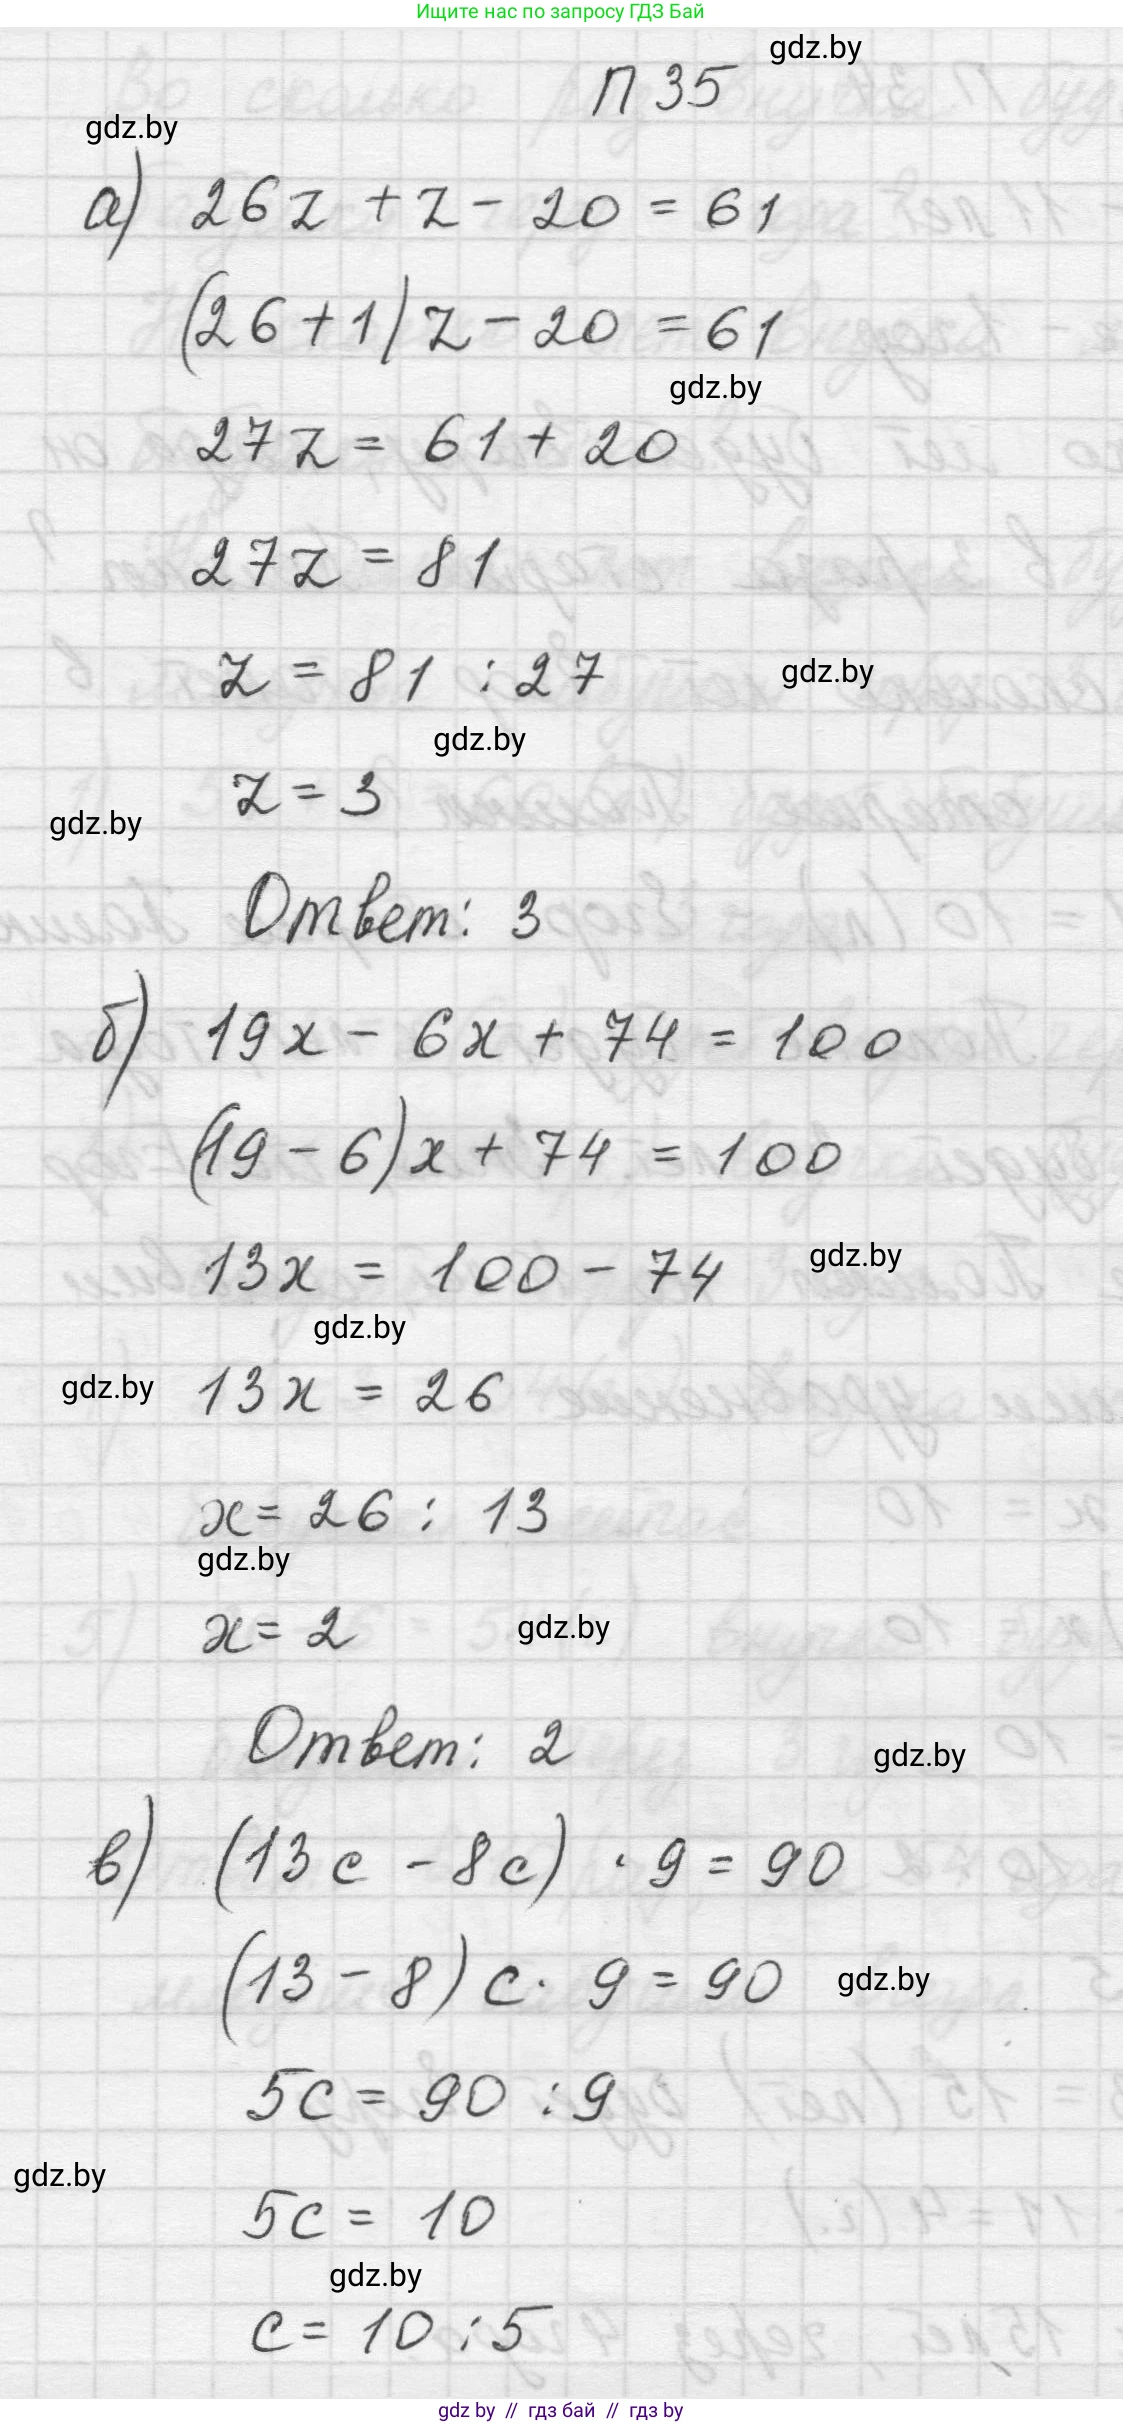 Ищите нас по запросу ГДЗ Бай
gdz.by
П 35
gdz.by
а) 26z + z - 20 = 61
(26 + 1) z - 20 = 61
gdz.by
27z = 61 + 20
27z = 81
z = 81 : 27
gdz.by
gdz.by
z = 3
gdz.by
Ответ: 3
б) 19x - 6x + 74 = 100
(19 - 6)x + 74 = 100
13x = 100 - 74
gdz.by
gdz.by
13x = 26
gdz.by
x = 26 : 13
gdz.by
x = 2
gdz.by
Ответ: 2
gdz.by
в) (13c - 8c) · 9 = 90
(13 - 8) c · 9 = 90
gdz.by
5c = 90 : 9
gdz.by
5c = 10
gdz.by
c = 10 : 5
gdz by // гдз бай // гдз by